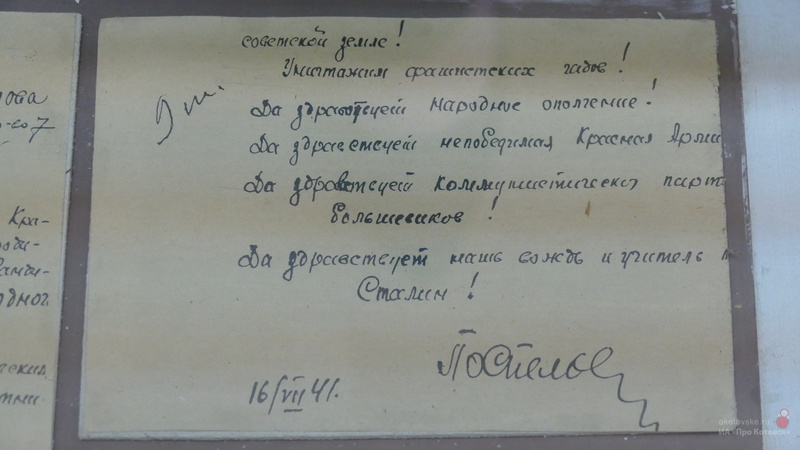 ова
7
Кра-
одног
советской земле!
Уничтажим фашистских гадов!
Да здравствует Народное ополчение!
Да здравствует непобедимая Красная Арми
Да здравствует коммунистическая парт
большевиков!
Да здравствует нашь вождь и учитель т
Сталин!
Поспелов
16/VII 41.
okotovske.ru
ИА «Про Котовск»